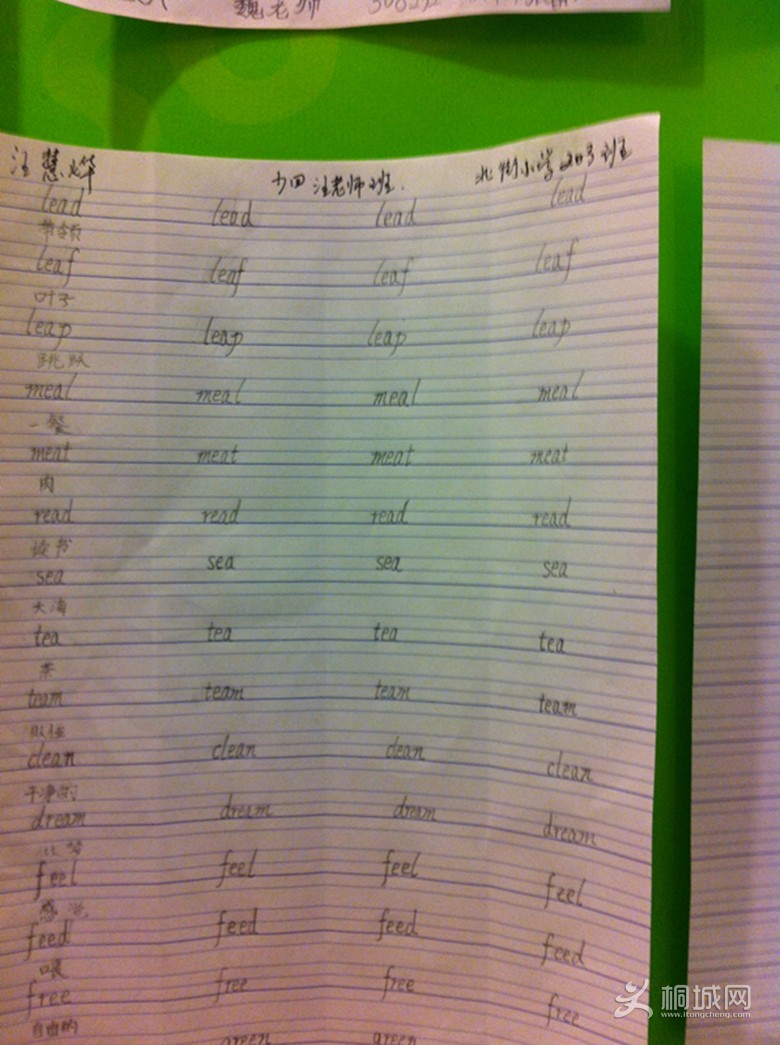 魏老师
汪慧烨 少四汪老师班. 北街小学 班
lead lead lead lead
带领
leaf leaf leaf leaf
叶子
leap leap leap leap
跳跃
meal meal meal meal
一餐
meat meat meat meat
肉
read read read read
读书
sea sea sea sea
大海
tea tea tea tea
茶
team team team team
队伍
clean clean clean clean
干净的
dream dream dream dream
feel feel feel feel
感觉
feed feed feed feed
喂
free free free free
自由的
green green
桐城网
www.itongcheng.com